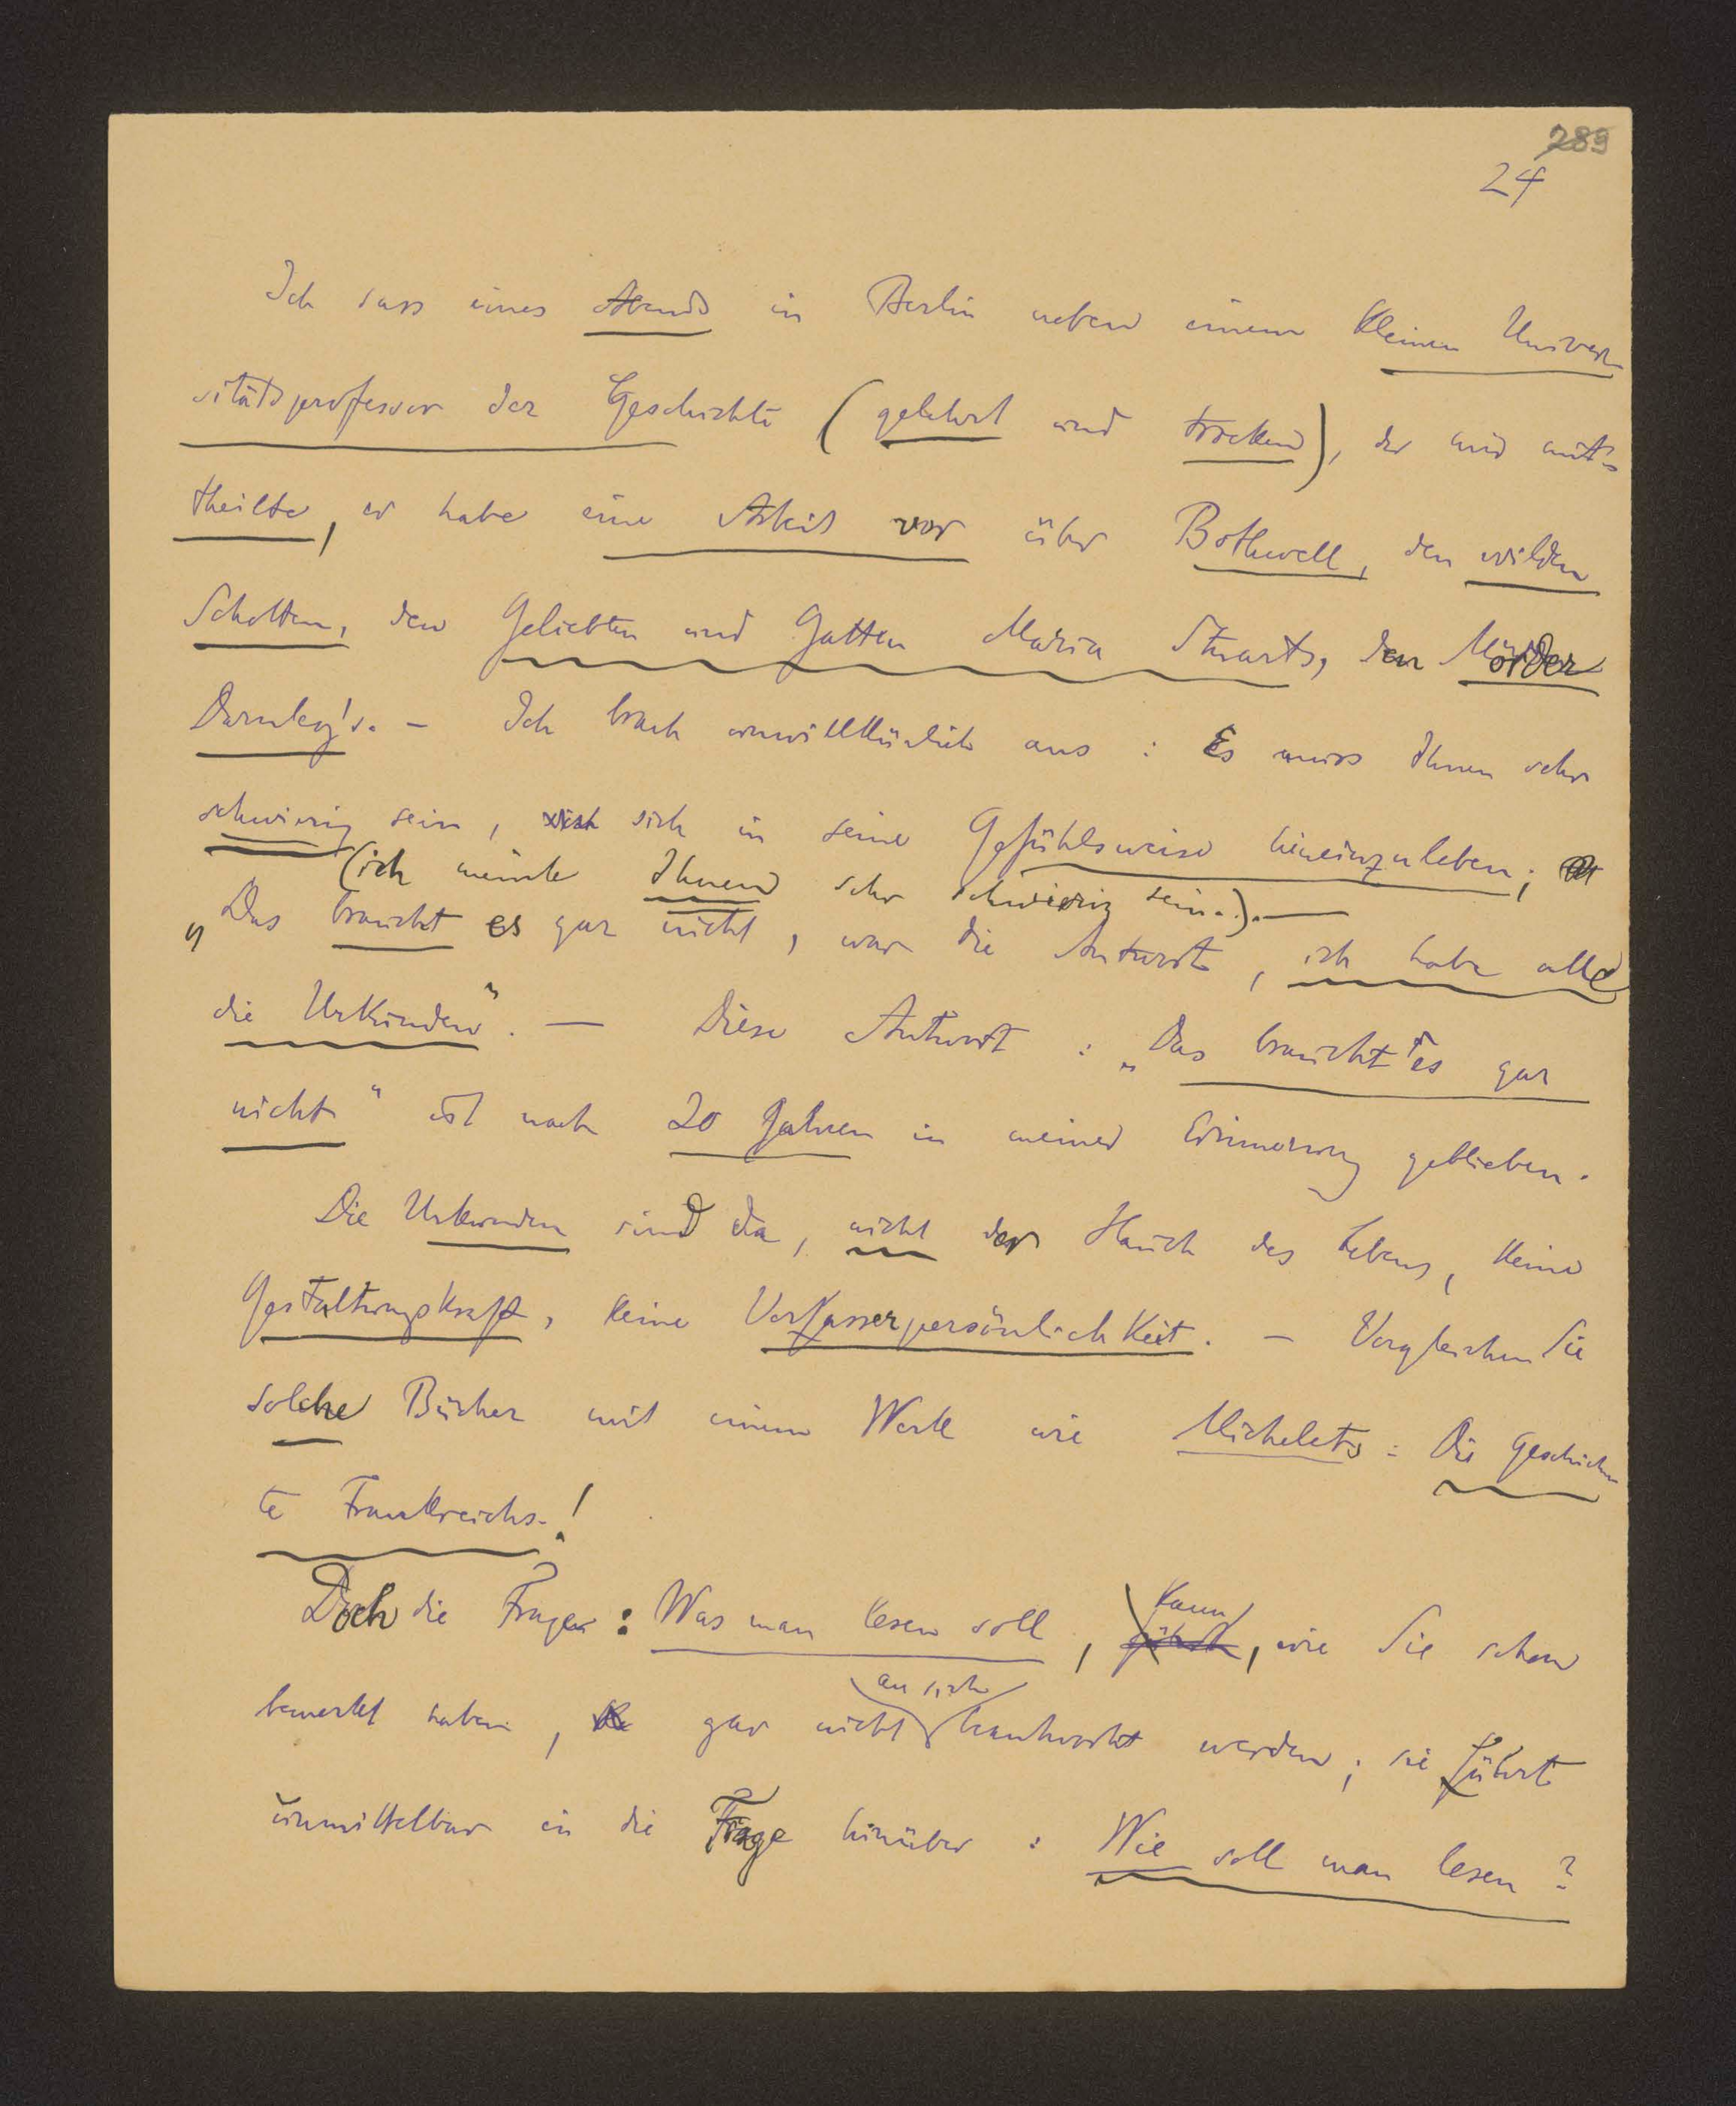 289
24
Ich sass eines Abends in Berlin neben einem kleinen Univer-
sitätsprofessor der Geschichte (gelehrt und trocken), der mir mit-
theilte, er habe eine Arbeit vor über Bothwell, den wilden
Schotten, den Geliebten und Gatten Maria Stuarts, den Mörder
Darnley's. – Ich brach unwillkürlich aus: Es muss Ihnen sehr
schwierig sein, sich in seine Gefühlsweise hineinzuleben;
(ich meinte Ihnen sehr schwierig sein.). —
„Das braucht es gar nicht, war die Antwort, ich habe alle
die Urkunden". — Diese Antwort: „Das braucht es gar
nicht" ist nach 20 Jahren in meiner Erinnerung geblieben.
Die Urkunden sind da, nicht der Hauch des Lebens, keine
Gestaltungskraft, keine Verfasserpersönlichkeit. – Vergleichen Sie
solche Bücher mit einem Werk wie Michelets: Die Geschich-
te Frankreichs.!
Doch die Frage: Was man lesen soll, kann, wie Sie schon
bemerkt haben, gar nicht an sich beantwortet werden; sie führt
unmittelbar in die Frage hinüber: Wie soll man lesen?